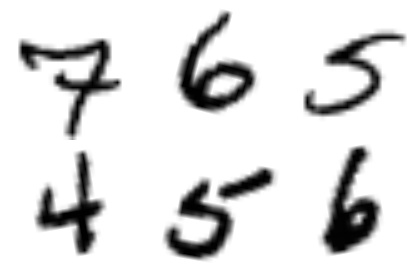 7 6 5
4 5 6